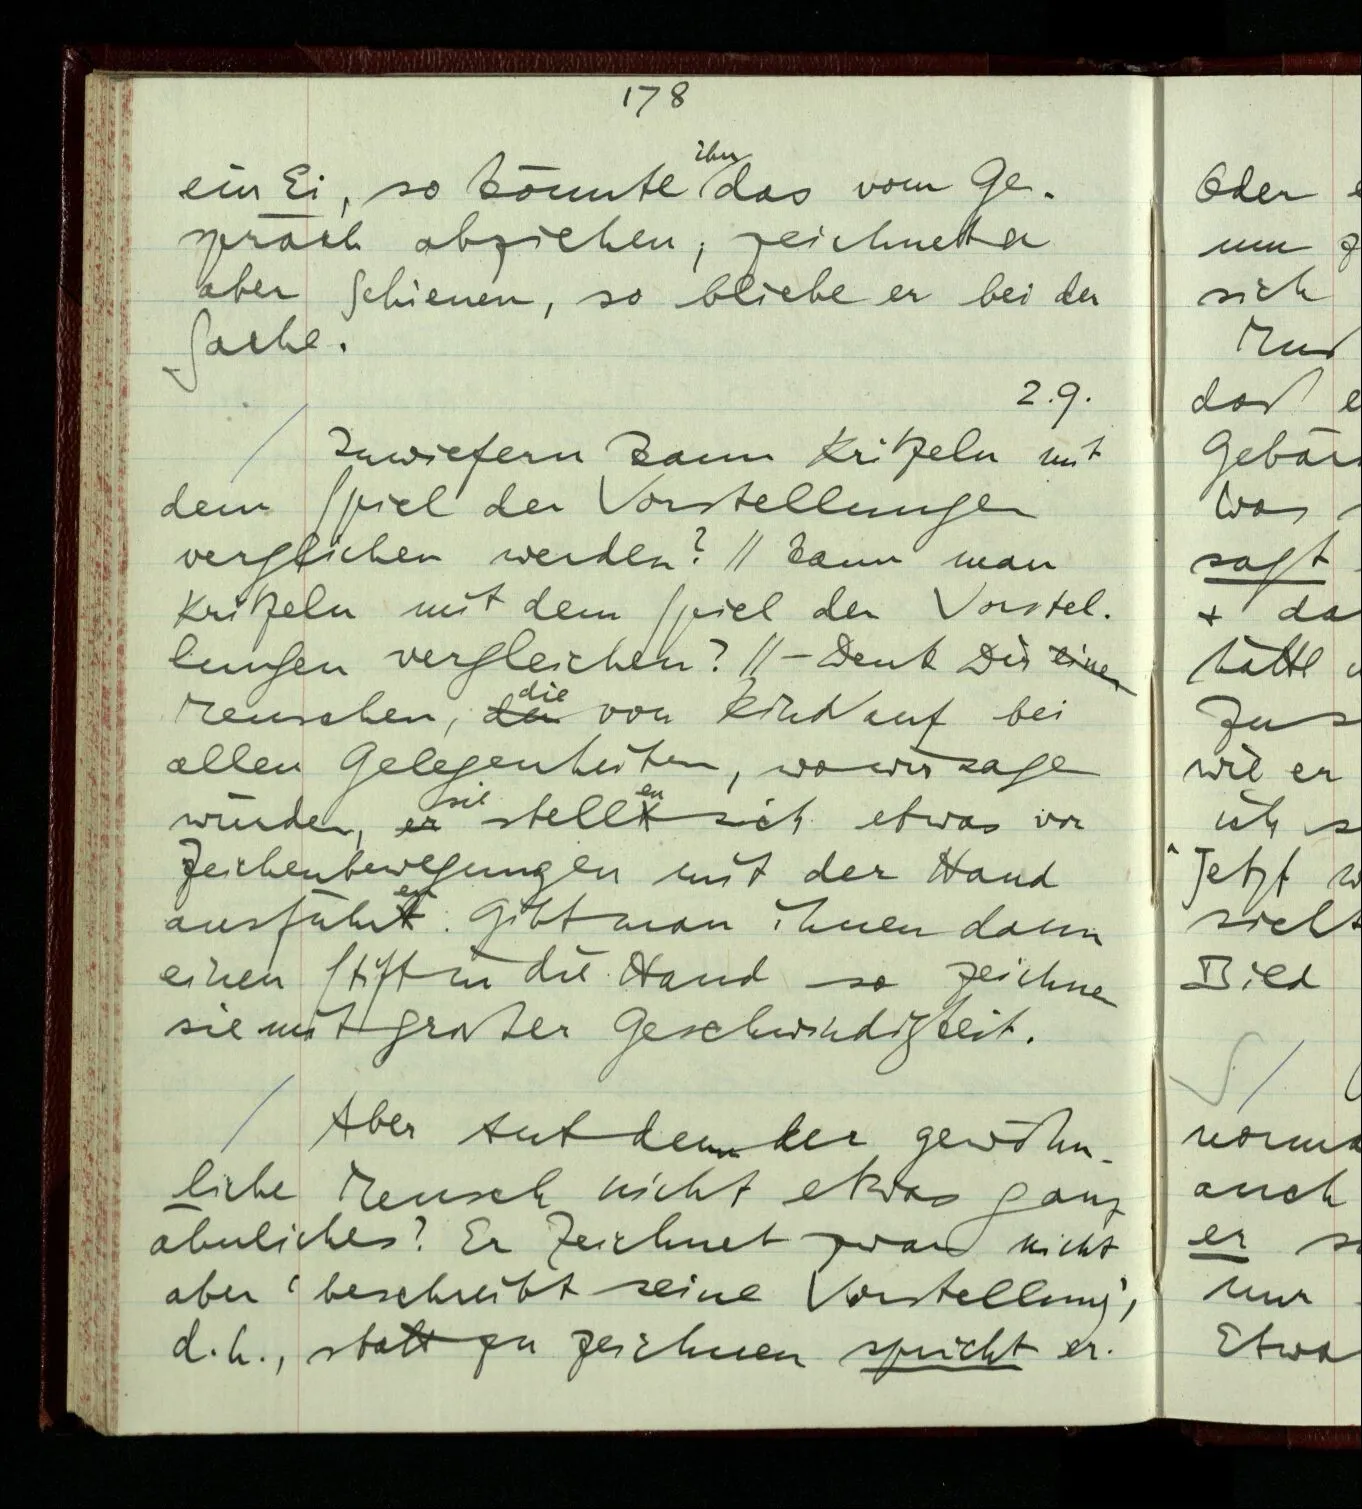 178
ein Ei, so könnte ihn das vom Ge-
spräch abziehen; zeichnet er
aber Schienen, so bliebe er bei der
Sache.
2.9.
Inwiefern kann Kritzeln mit
dem Spiel der Vorstellungen
verglichen werden? // Kann man
Kritzeln mit dem Spiel der Vorstel-
lungen vergleichen? // – Denk Dir einen
Menschen, der die von Kind auf bei
allen Gelegenheiten, wo wir sagen
würden, er sie stellten sich etwas vor
Zeichenbewegungen mit der Hand
ausführten. Gibt man ihnen dann
einen Stift in die Hand so zeichnen
sie mit großer Geschwindigkeit.
Aber tut denn der gewöhn-
liche Mensch nicht etwas ganz
ähnliches? Er zeichnet zwar nicht
aber 'beschreibt seine Vorstellung',
d.h., statt zu zeichnen spricht er.
Oder
um
sich
Und
daß
Was
sagt
+ da
hätte
wie er
ich s
"Jetzt
sieht
Bild
auch
er
nur